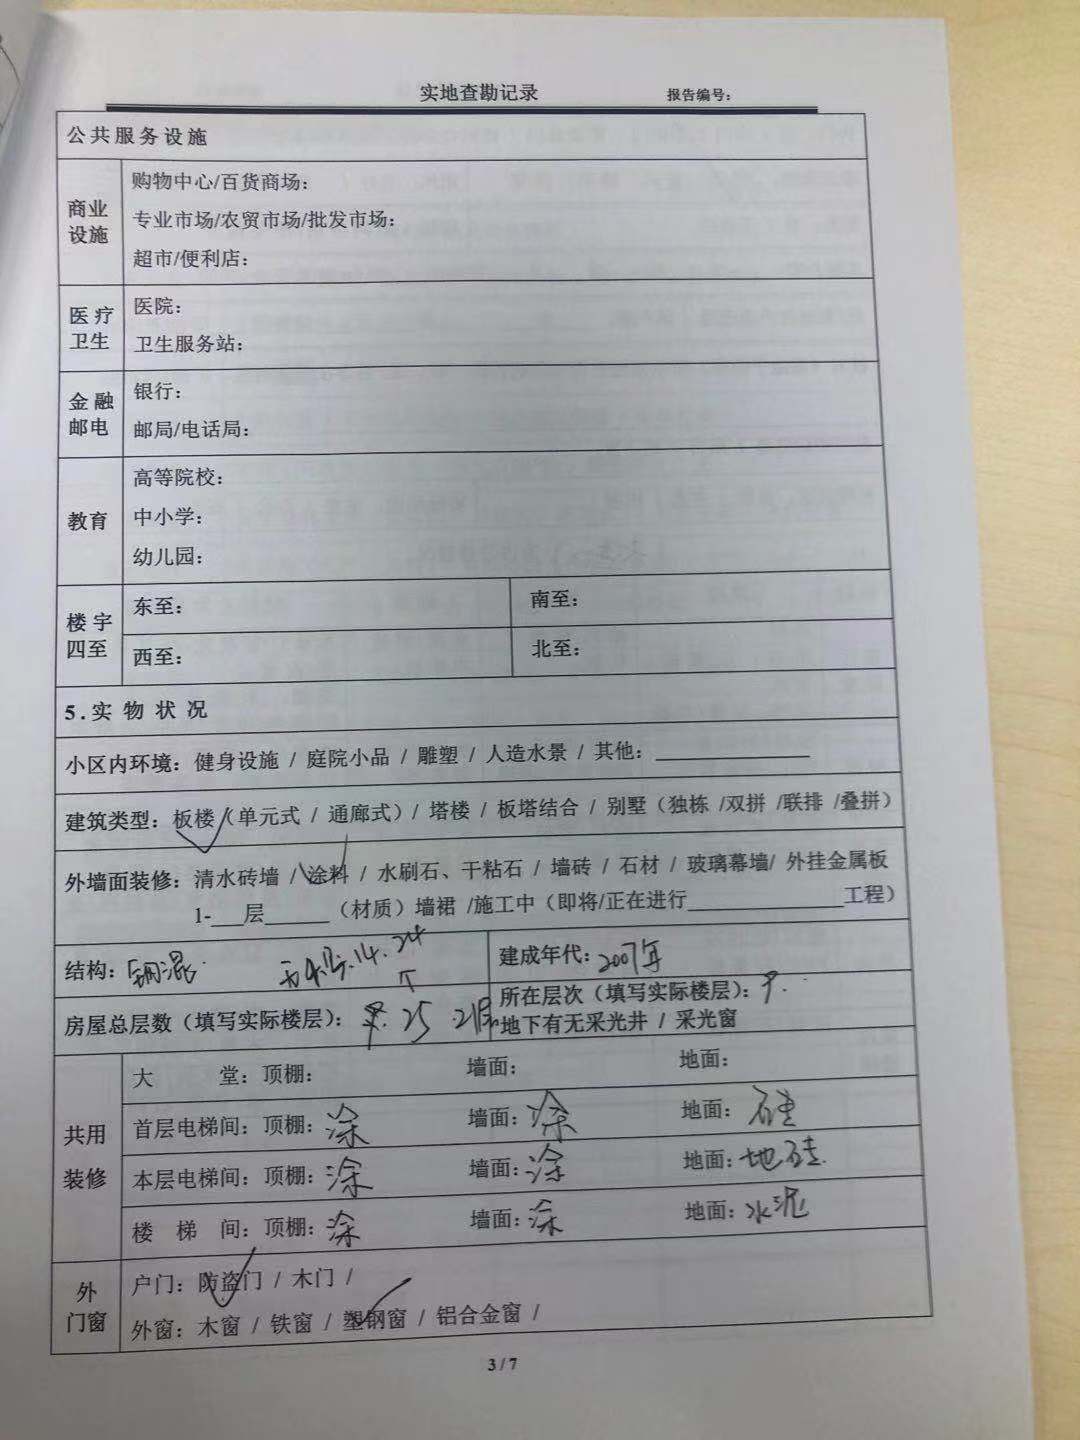 实地查勘记录 报告编号：
公共服务设施
商业设施
购物中心/百货商场：
专业市场/农贸市场/批发市场：
超市/便利店：
医疗卫生
医院：
卫生服务站：
金融邮电
银行：
邮局/电话局：
教育
高等院校：
中小学：
幼儿园：
楼宇四至
东至： 南至：
西至： 北至：
5.实物状况
小区内环境：健身设施 / 庭院小品 / 雕塑 / 人造水景 / 其他：
建筑类型：板楼（单元式 / 通廊式）/ 塔楼 / 板塔结合 / 别墅（独栋 /双拼 /联排 /叠拼）
外墙面装修：清水砖墙 / 涂料 / 水刷石、干粘石 / 墙砖 / 石材 / 玻璃幕墙/ 外挂金属板
1-___层______（材质）墙裙 /施工中（即将/正在进行______________工程）
结构：钢混 14.24 建成年代：2007年
房屋总层数（填写实际楼层）： 25 所在层次（填写实际楼层）：9.
地下有无采光井 / 采光窗
共用装修
大堂：顶棚： 墙面： 地面：
首层电梯间：顶棚：涂 墙面：涂 地面：
本层电梯间：顶棚：涂 墙面：涂 地面：地
楼梯间：顶棚：涂 墙面：涂 地面：水泥
外门窗
户门：防盗门 / 木门 /
外窗：木窗 / 铁窗 / 塑钢窗 / 铝合金窗 /
3 / 7